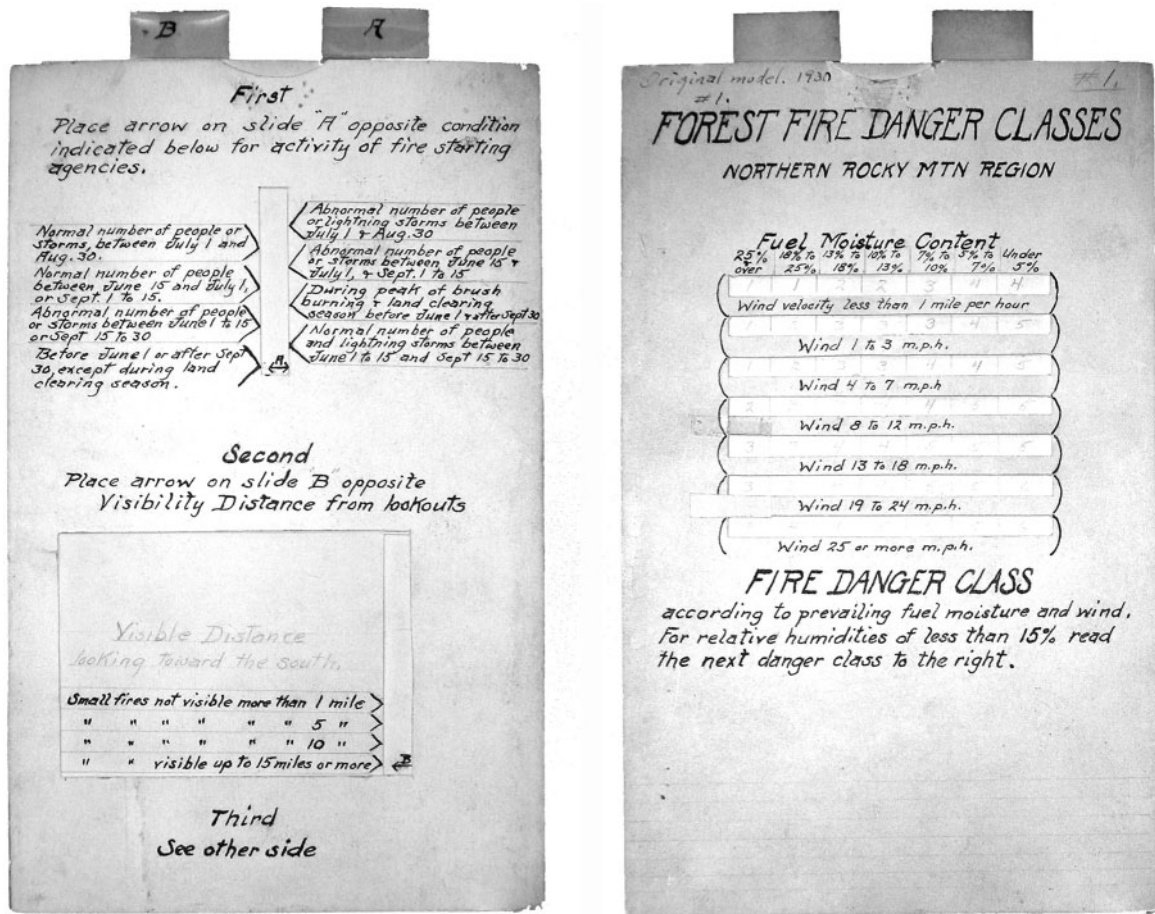 B
A
First
Place arrow on slide "A" opposite condition
indicated below for activity of fire starting
agencies.
Normal number of people or
storms, between July 1 and
Aug. 30.
Normal number of people
between, June 15 and July 1,
or Sept. 1 to 15.
Abnormal number of people
or storms between June 1 to 15
or Sept 15 to 30
Before June 1 or after Sept
30, except during land
clearing season.
Abnormal number of people
or lightning storms between
July 1 & Aug. 30
Abnormal number of people
or storms between June 15 &
July 1, & Sept. 1 to 15
During peak of brush
burning & land clearing
season before June 1 & after Sept 30
Normal number of people
and lightning storms between
June 1 to 15 and Sept 15 to 30
A
Second
Place arrow on slide "B" opposite
Visibility Distance from lookouts
Visible Distance
looking toward the south.
Small fires not visible more than 1 mile
" " " " " " 5 "
" " " " " " 10 "
" " visible up to 15 miles or more
B
Third
See other side
Original model. 1930
#1.
#1.
FOREST FIRE DANGER CLASSES
NORTHERN ROCKY MTN REGION
Fuel Moisture Content
25% & over 18% to 25% 13% to 18% 10% to 13% 7% to 10% 5% to 7% Under 5%
1 1 2 2 3 4 4
Wind velocity less than 1 mile per hour
1 3 3 3 4 5
Wind 1 to 3 m.p.h.
1 3 3 4 4 5
Wind 4 to 7 m.p.h
2 4 5
Wind 8 to 12 m.p.h.
3 5
Wind 13 to 18 m.p.h.
3
Wind 19 to 24 m.p.h.
Wind 25 or more m.p.h.
FIRE DANGER CLASS
according to prevailing fuel moisture and wind.
For relative humidities of less than 15% read
the next danger class to the right.